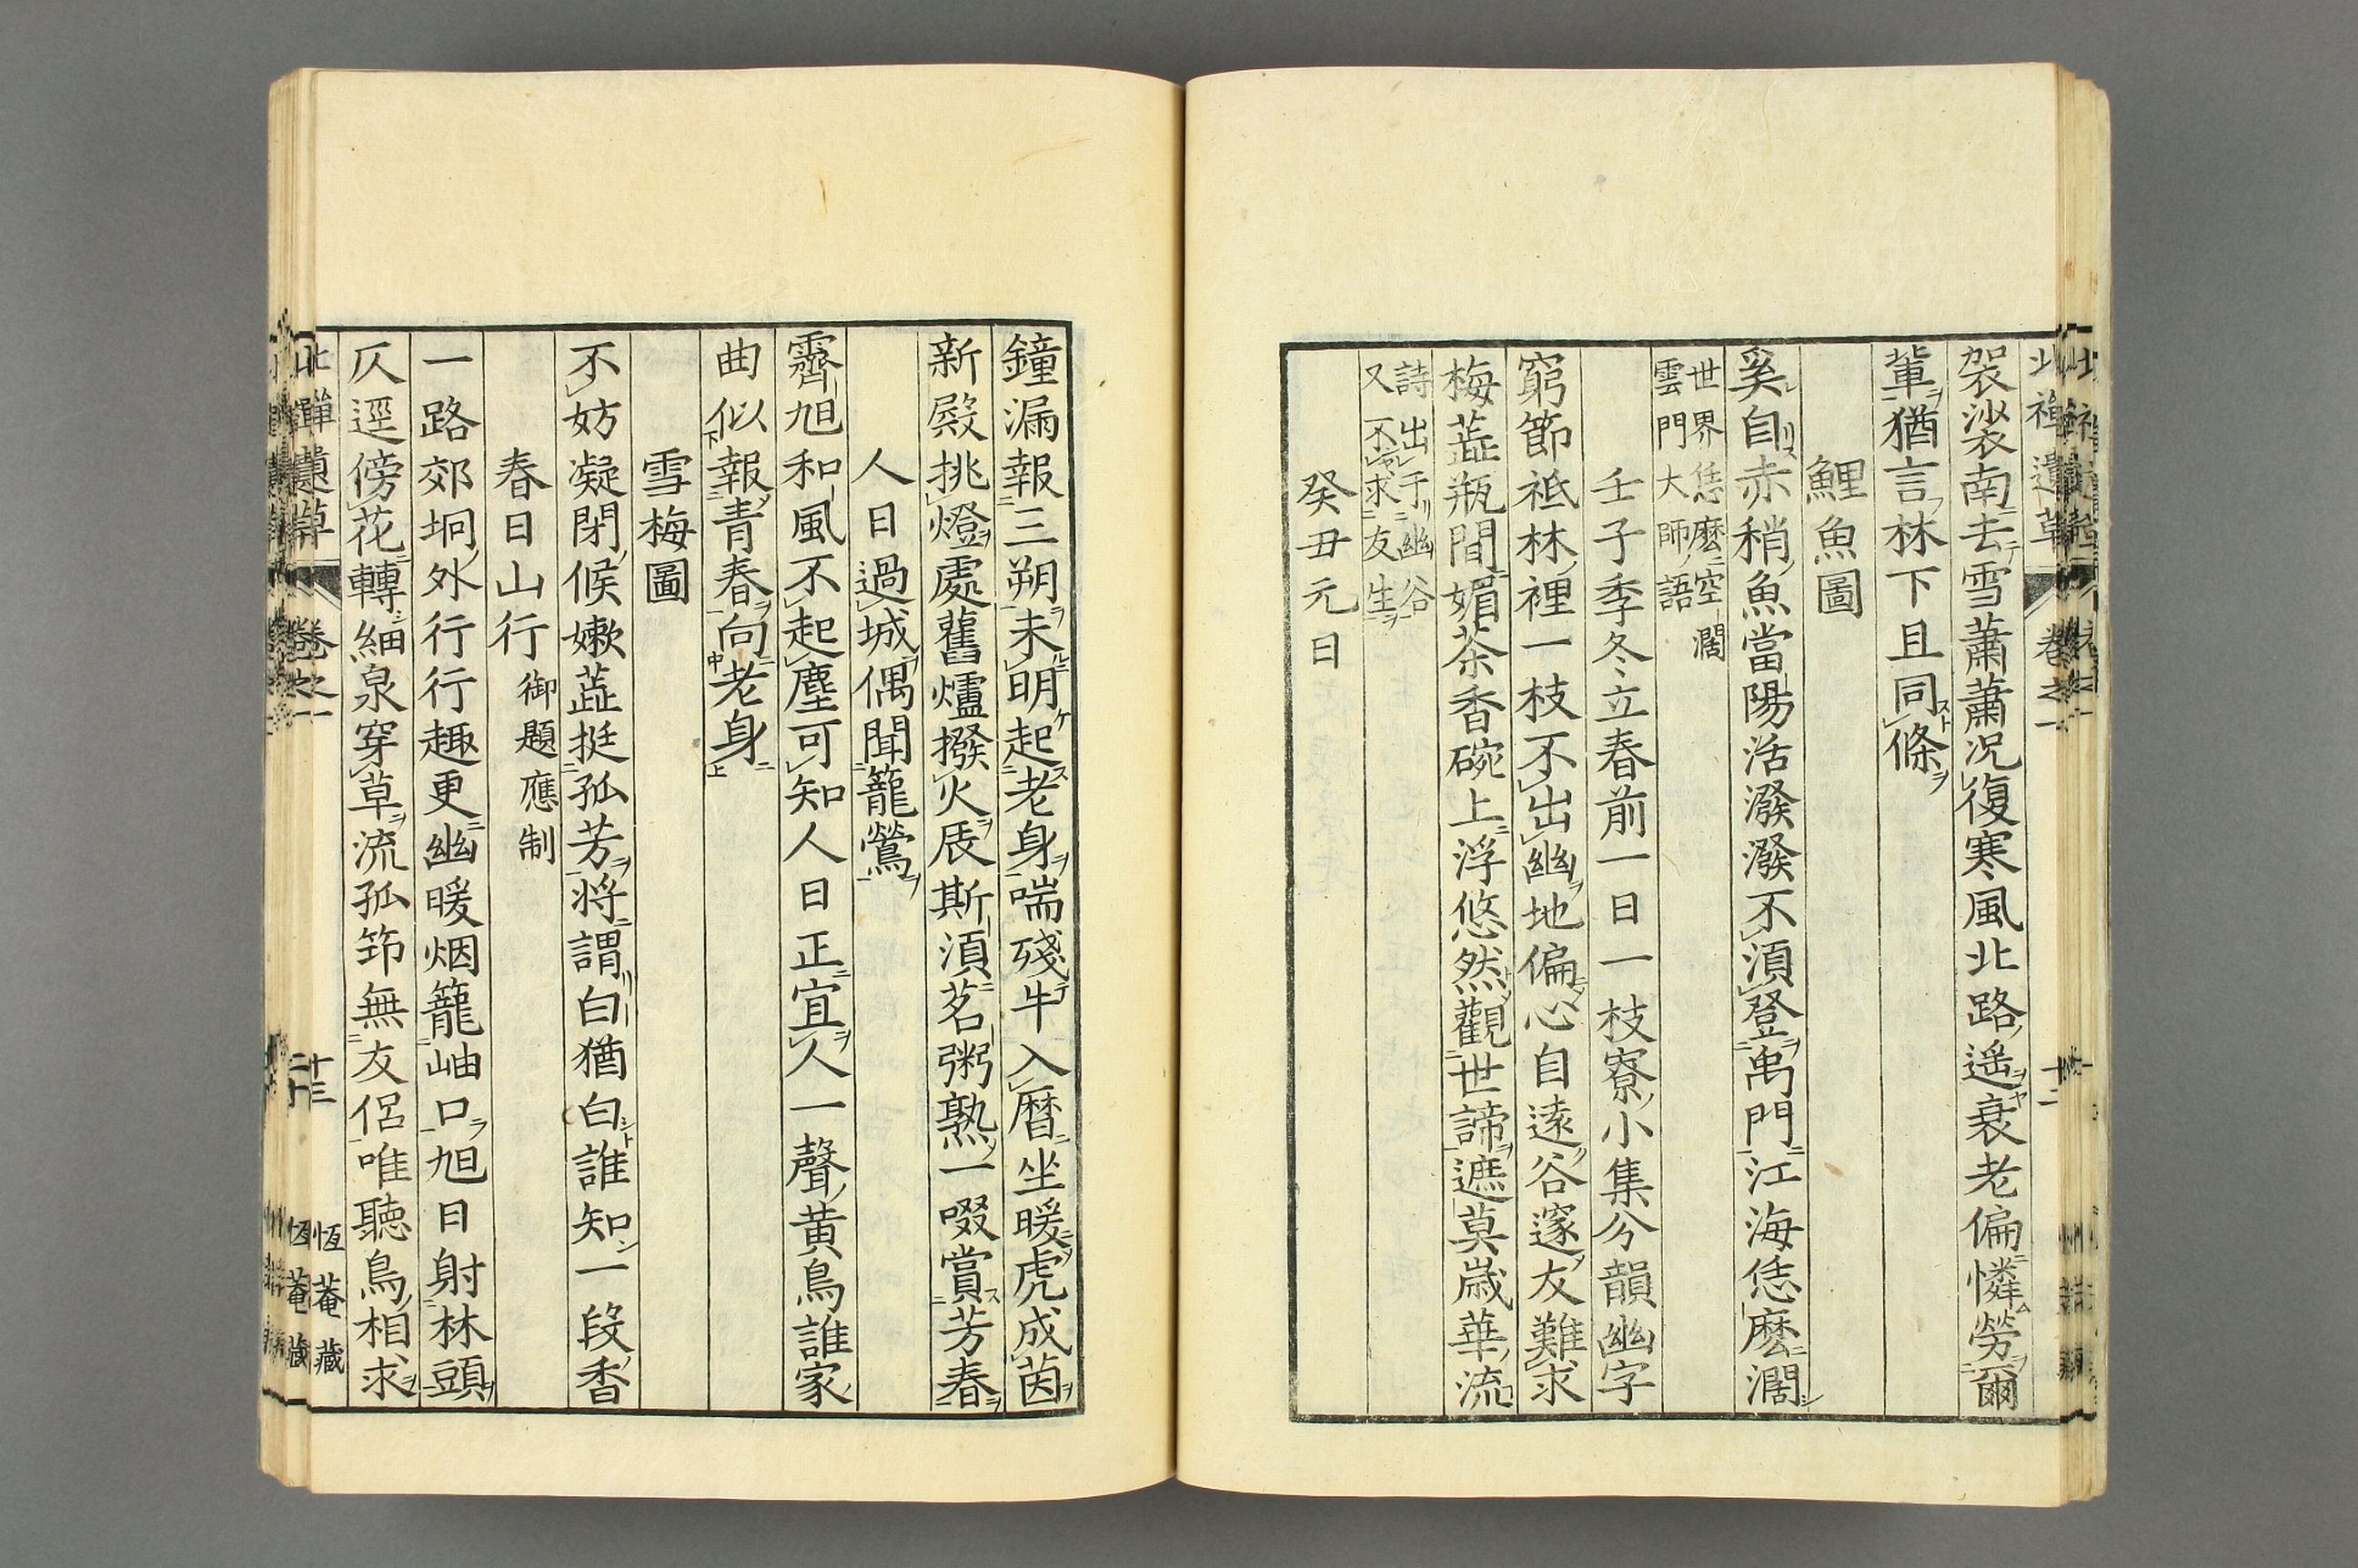 北禅遺草 卷之一 十二
袈裟南去雪蕭蕭況復寒風北路遥衰老偏憐勞爾
輩猶言林下且同條
鯉魚圖
奚自赤稍魚當陽活潑潑不湏登禹門江海恁麽濶
世界恁麽空濶
雲門大師語
壬子季冬立春前一日一枝寮小集分韻幽字
窮節祗林裡一枝不出幽地偏心自遠谷邃友難求
梅蘂瓶間媚茶香碗上浮悠然觀世諦遮莫歳華流
詩出于幽谷
又不求友生
癸丑元日
鐘漏報三朔未明起老身喘殘牛入暦坐暖虎成茵
新殿挑燈處舊爐撥火辰斯湏茗粥熟一啜賞芳春
人日過城偶聞籠鶯
霽旭和風不起塵可知人日正宜人一聲黄鳥誰家
曲似報青春向老身
雪梅圖
不妨凝閉候嫩蘂挺孤芳将謂白猶白誰知一段香
春日山行 御題應制
一路郊坰外行行趣更幽暖烟籠岫口旭日射林頭
仄逕傍花轉細泉穿草流孤筇無友侶唯聽鳥相求
北禅遺草 卷之一 十三 恆菴藏